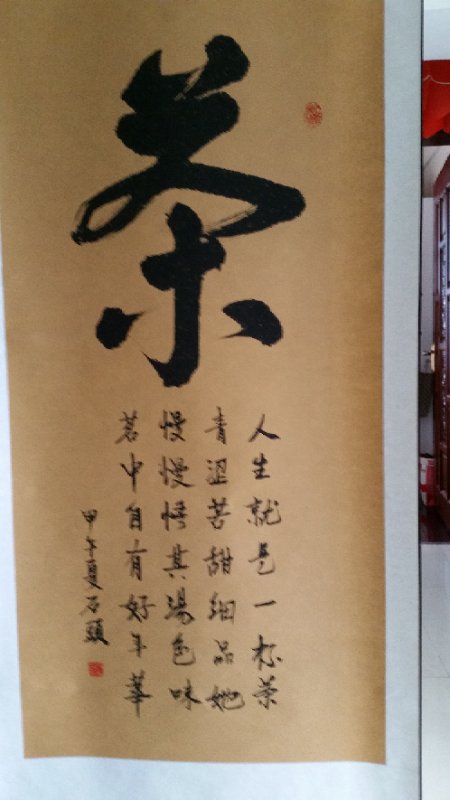 茶
人生就是一杯茶
青涩苦甜细品她
慢慢悟其湯色味
茗中自有好年華
甲午夏石頭